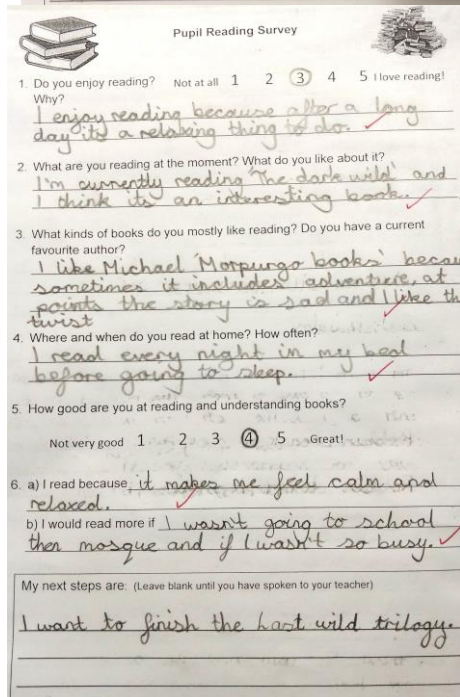 Pupil Reading Survey
1. Do you enjoy reading? Not at all 1 2 3 4 5 I love reading!
Why?
I enjoy reading because after a long
day its a relaxing thing to do.
2. What are you reading at the moment? What do you like about it?
I'm currently reading 'The dark wild' and
I think its an interesting book.
3. What kinds of books do you mostly like reading? Do you have a current
favourite author?
I like Michael 'Morpurgo books' becau
sometimes it includes adventure, at
points the story is sad and I like th
twist
4. Where and when do you read at home? How often?
I read every night in my bed
before going to sleep.
5. How good are you at reading and understanding books?
Not very good 1 2 3 4 5 Great!
6. a) I read because it makes me feel calm and
relaxed.
b) I would read more if I wasn't going to school
then mosque and if I wasn't so busy.
My next steps are: (Leave blank until you have spoken to your teacher)
I want to finish the Last wild trilogy.